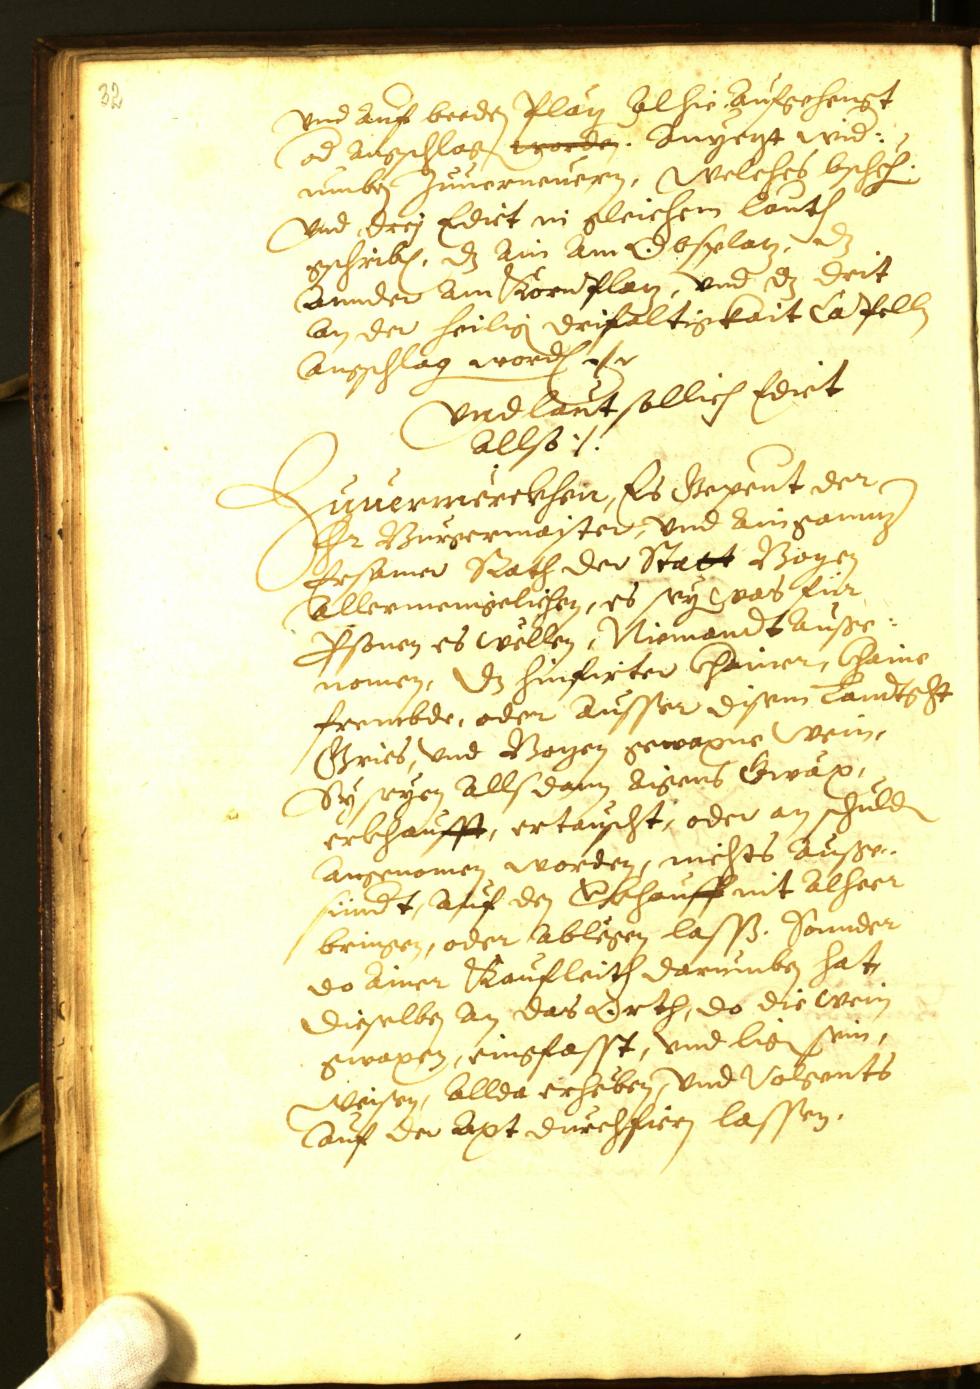 32
und auf beeden Pläz alhie aufgehengt
od angschlag worden. Anyezt wid:
umben zuuerneuern, welches bscheh:
Und drej Edict in gleichem lauth
gschriben, dz ain am Obsplaz, dz
annder am Kornplaz, und dz drit
an der heilig drifaltigkait Capelln
angschlag worden
Und laut sollich Edict
allso :/:
Zuuermerckhen, Es Gepeut der
Hr Burgermaister, und ain ganntz
Ersamer Rath der Statt Bozen
allermenigelichen, es sey was für
Psonen es wellen, Niemandt ausge:
nomen, dz hinfüter khainer, khaine
frembde, oder ausser disem Landtgcht
Gries, und Bozen gewaxne Wein,
Sy seyen allsdann aigens Gwäx,
erkhaufft, ertauscht, oder an schuld
angenomen worden, nichts ausge:
sündt, auf den Vkhauff nit alheer
bringen, oder ablegen lasse. Sonnder
do ainer Kaufleith darumben hat,
dieselben an das Orth, do die Wein
gwaxen, eingfasst, und lig sein,
weisen, allda erheben, und Volgents
auf der Axt durchfieren lassen.